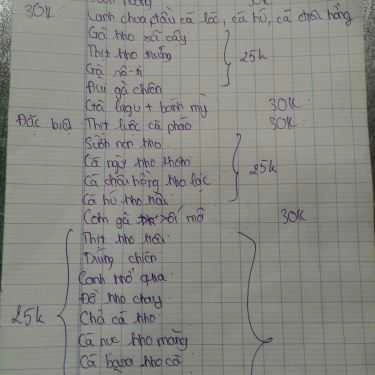 30K Canh chua đầu cá lóc, cá hú, cá diêu hồng
Gà kho xả cây
Thịt kho trứng 25k
Gà rô-ti
Đùi gà chiên
Gà lagu + bánh mỳ 30K
Đặc biệt Thịt luộc cà pháo 30K
Sườn non kho
Cá ngừ kho thơm 25k
Cá diêu hồng kho lạc
Cá hú kho
Cơm gà xối mỡ 30K
Thịt kho tiêu
Trứng chiên
Canh khổ qua
Đồ kho chay
25k Chả cá kho
Cá nục kho măng
Cá basa kho tộ